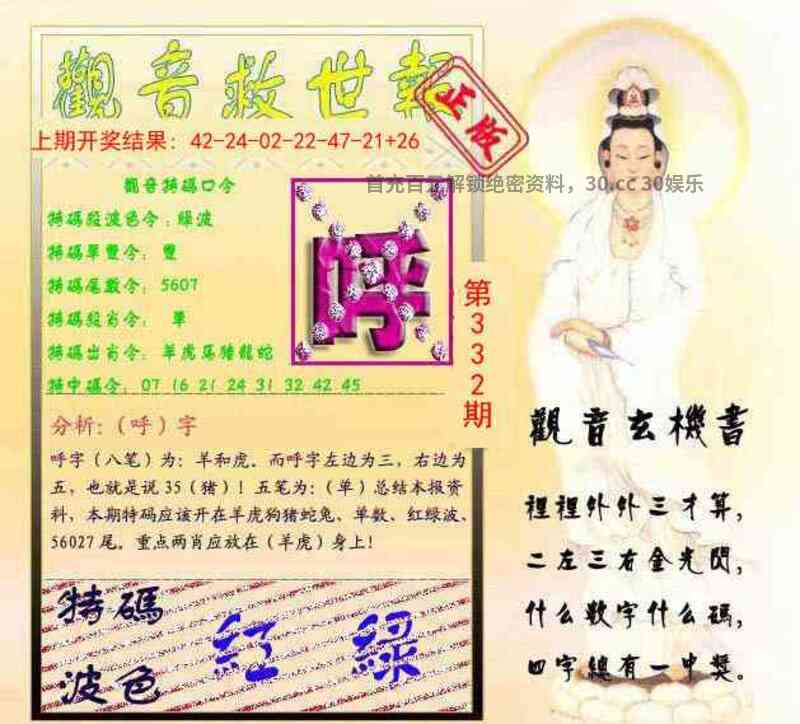 觀音救世報
正版
上期开奖结果：42-24-02-22-47-21+26
首充百元解锁绝密资料，30.cc30娱乐
觀音特碼口令
特碼段波色令：綠波
特碼單雙令：雙
特碼尾數令：5607
特碼段肖令：單
特碼出肖令：羊虎馬猪龍蛇
特中碼令：07 16 21 24 31 32 42 45
呼
第332期
分析：（呼）字
呼字（八笔）为：羊和虎．而呼字左边为三，右边为
五，也就是说 35（猪）！五笔为：（单）总结本报资
料，本期特码应该开在羊虎狗猪蛇兔、单数、红绿波、
56027 尾。重点两肖应放在（羊虎）身上！
特碼
波色
紅 綠
觀音玄機書
裡裡外外三才算，
二左三右金光閃，
什么數字什么碼，
四字總有一中獎。